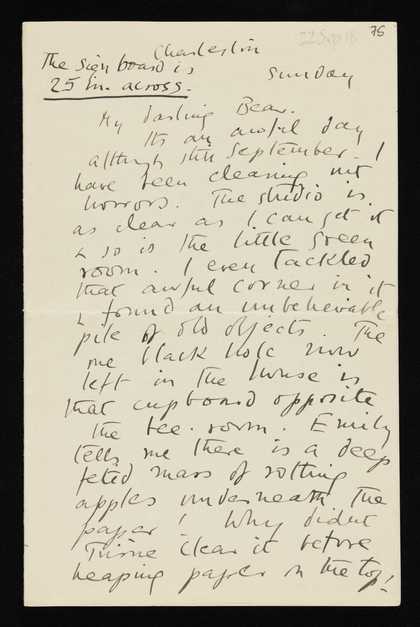 22 Sep 18
75
Charleston
The sign board is
25 in. across.
Sunday
My darling Bear.
Its an awful day
although still September. I
have been cleaning out
horrors. The studio is
as clear as I can get it
& so is the little green
room. I even tackled
that awful corner in it
& found an unbelievable
pile of old objects. The
one black hole now
left in the house is
that cupboard opposite
the bee. room. Emily
tells me there is a deep
fetid mass of rotting
apples underneath the
paper! Why didnt
clear it before
heaping paper on the top!